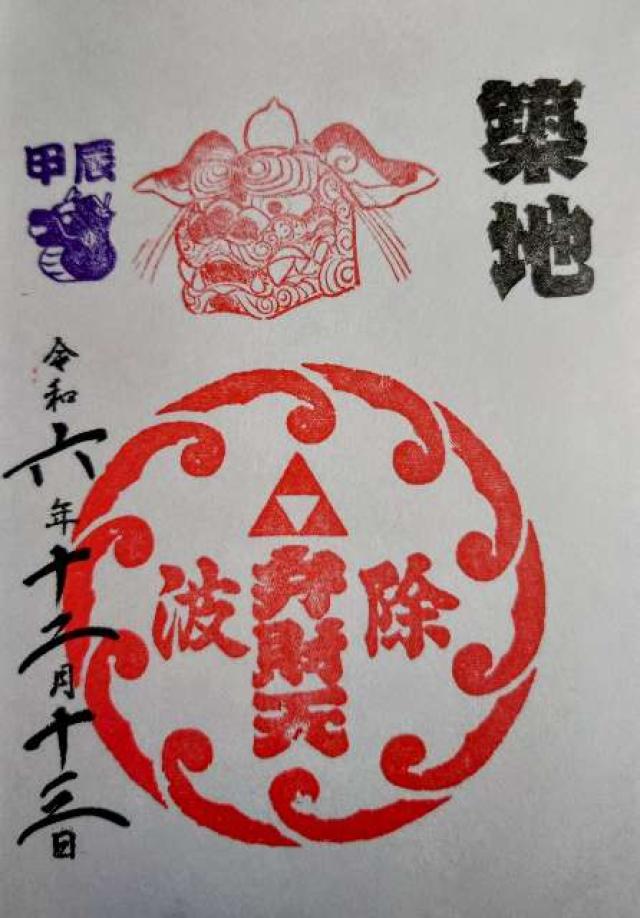 築地
甲辰
波除
弁財天
令和六年十二月十三日